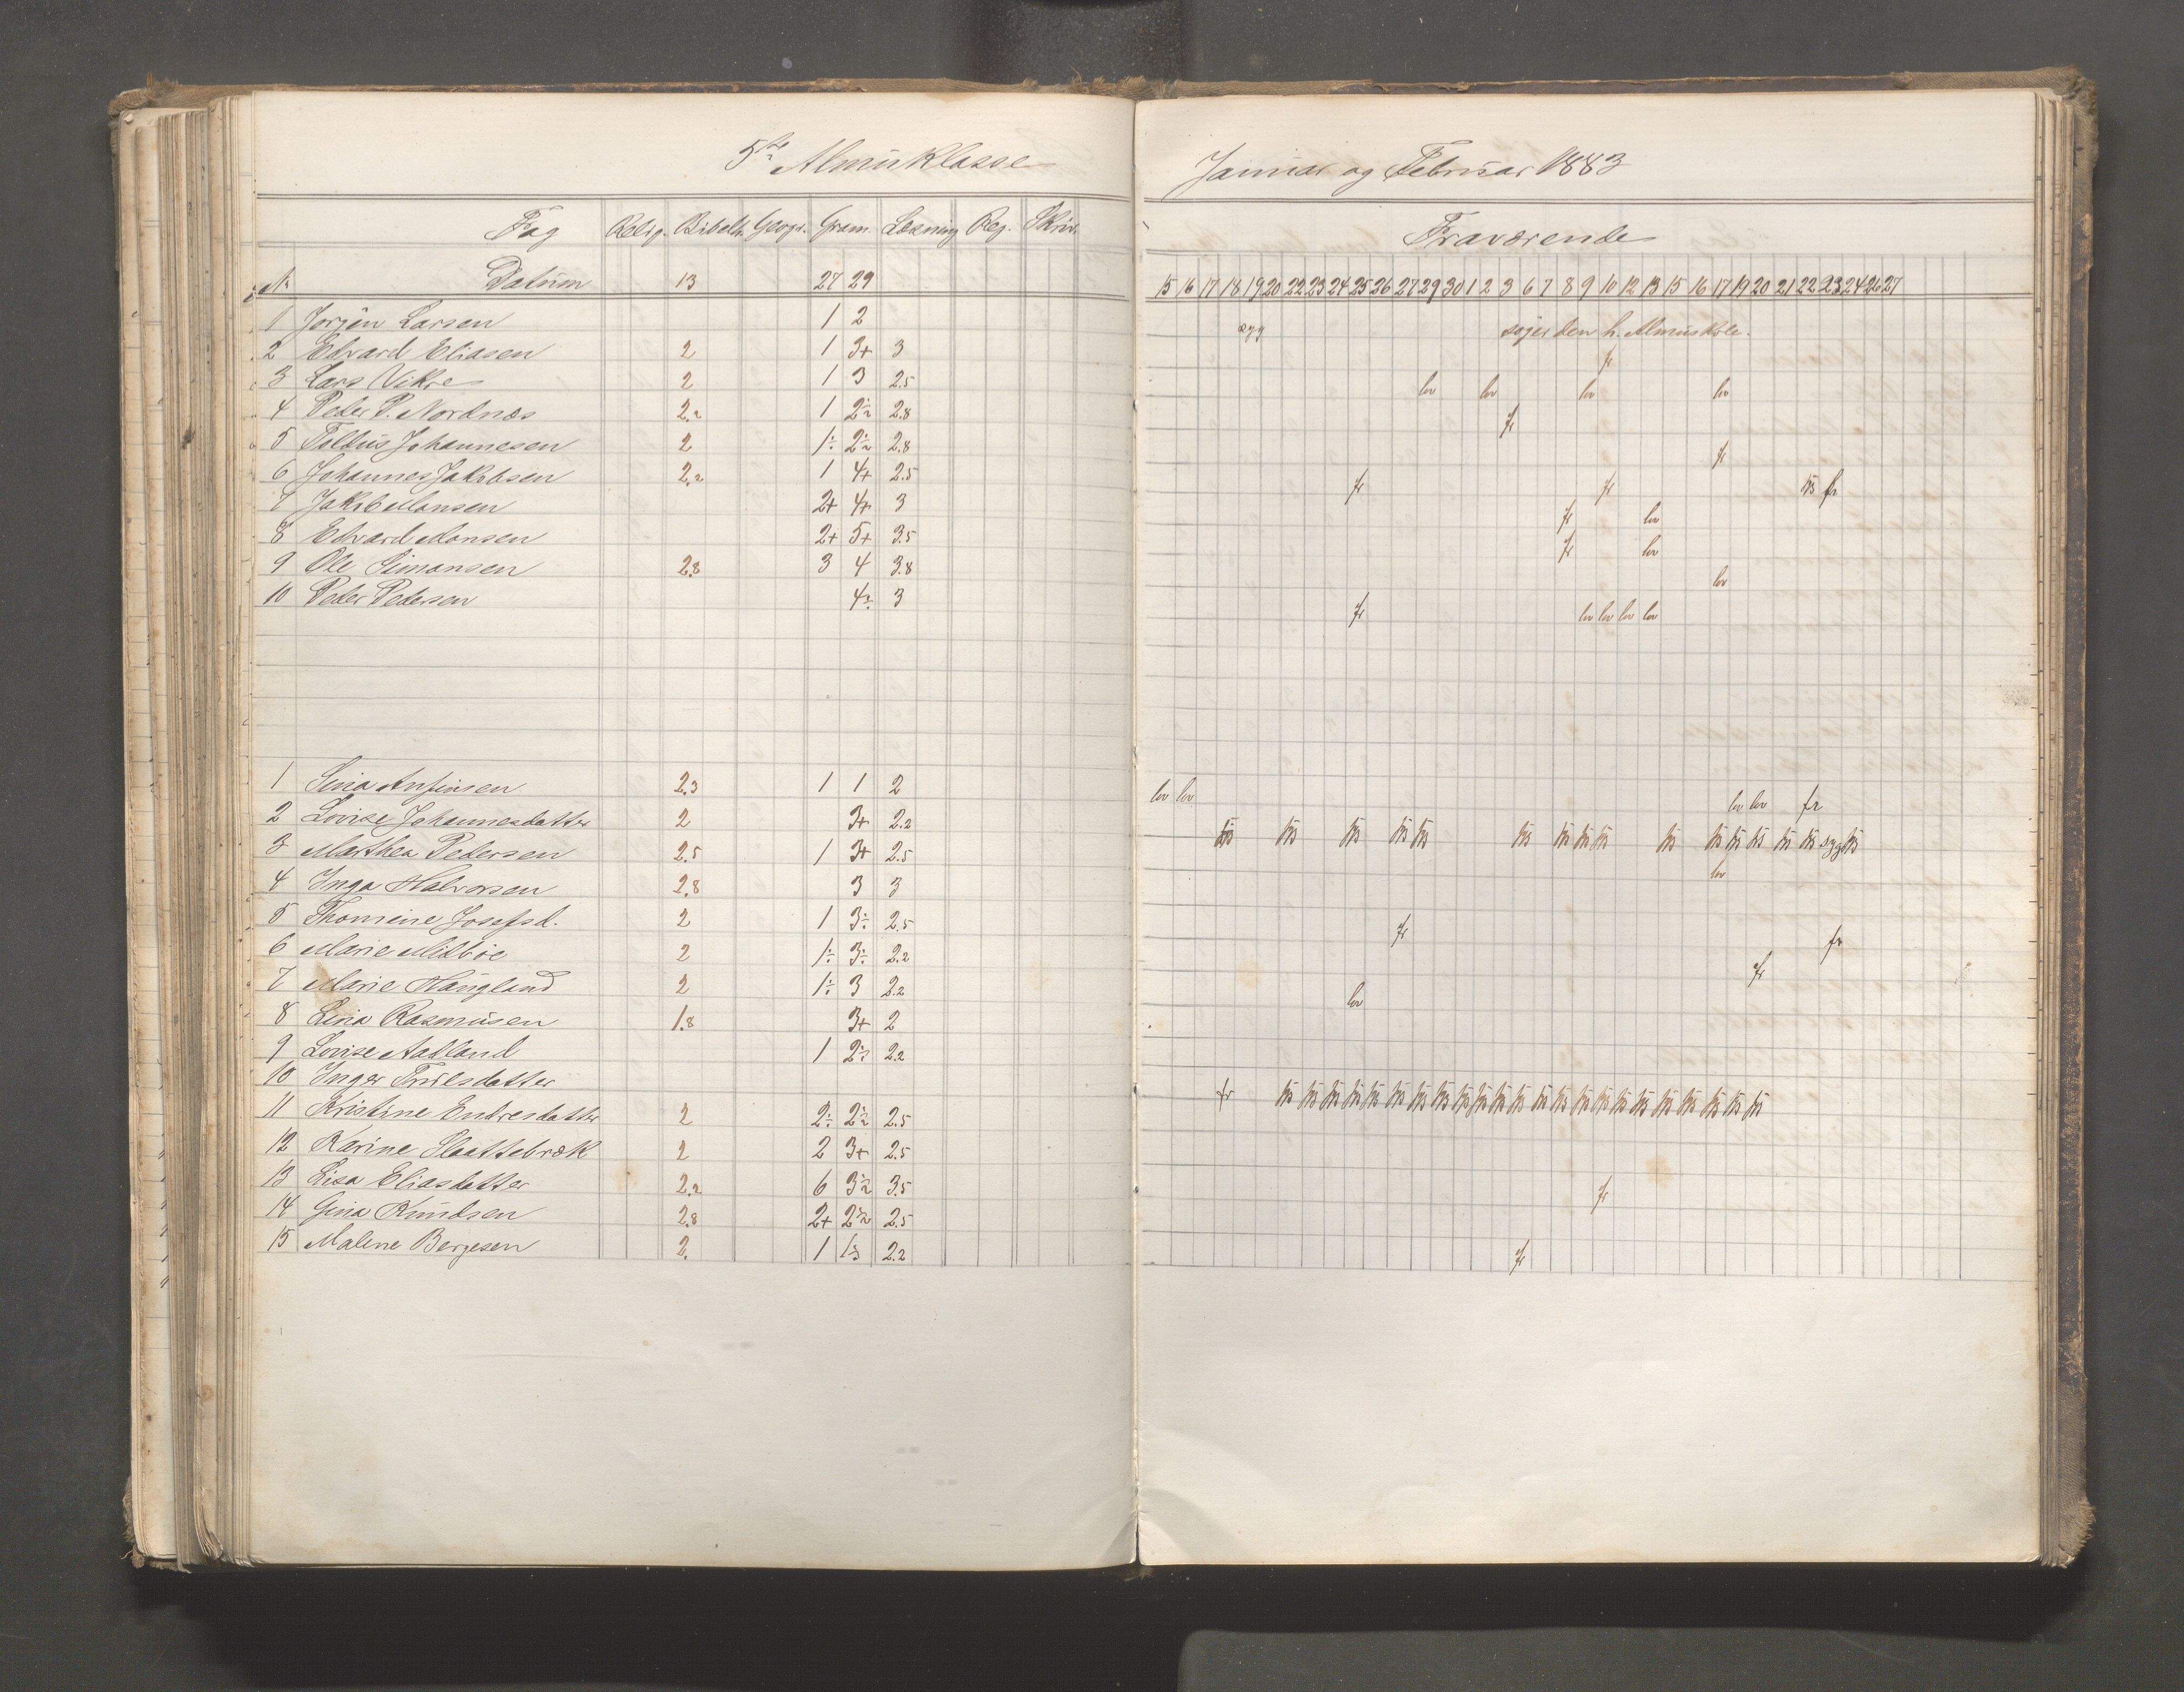 5te Almuklasse
Januar og Februar 1883
Fag Relig. Bibelh. Geogr. Gram. Læsning Reg. Skriv.
Fraværende
No Datum 13 27 29
15 16 17 18 19 20 22 23 24 25 26 27 29 30 1 2 3 6 7 8 9 10 12 13 15 16 17 19 20 21 22 23 24 26 27
1 Jørgen Larsen 1 2 syg søger den h. Almuskole.
2 Edvard Eliasen 2 1 3+ 3 fr
3 Lars Vikre 2 1 3 2.5 lov lov lov lov
4 Peder P. Nordnæs 2.2 1 2÷2 2.8 fr
5 Tolbus Johannesen 2 1÷ 2÷2 2.8 fr
6 Johannes Jakobsen 2.2 1 4+ 2.5 fr fr hs fr
7 Jakob Monsen 2+ 4+ 3 fr lov
8 Edvard Monsen 2+ 5+ 3.5 fr lov
9 Ole Simonsen 2.8 3 4 3.8 lov
10 Peder Pedersen 4÷ 3 fr lov lov lov lov
1 Sina Anfinsen 2.3 1 1 2 lov lov lov lov fr
2 Lovise Johannesdatter 2 3+ 2.2 hs hs hs hs hs hs hs hs hs hs hs hs hs hs hs syg hs
3 Marthea Pedersen 2.5 1 3+ 2.5 lov
4 Inga Halvorsen 2.8 3 3
5 Thomine Josefsd. 2 1 3÷ 2.5 fr fr
6 Marie Midbøe 2 1÷ 3÷ 2.2 fr
7 Marie Haugland 2 1÷ 3 2.2 lov
8 Lina Rasmusen 1.8 3+ 2
9 Lovise Aadland 1 2÷ 2.2
10 Inger Truelsdatter fr hs hs hs hs hs hs hs hs hs hs hs hs hs hs hs hs hs hs hs hs hs hs hs
11 Kristine Endresdatter 2 2÷ 2÷2 2.5
12 Karine Slaattebræk 2 2 3+ 2.5
13 Lisa Eliasdatter 2.2 6 3÷2 3.5 fr
14 Gina Knudsen 2.8 2+ 2÷2 2.5
15 Malene Bergesen 2. 1 1÷3 2.2 fr